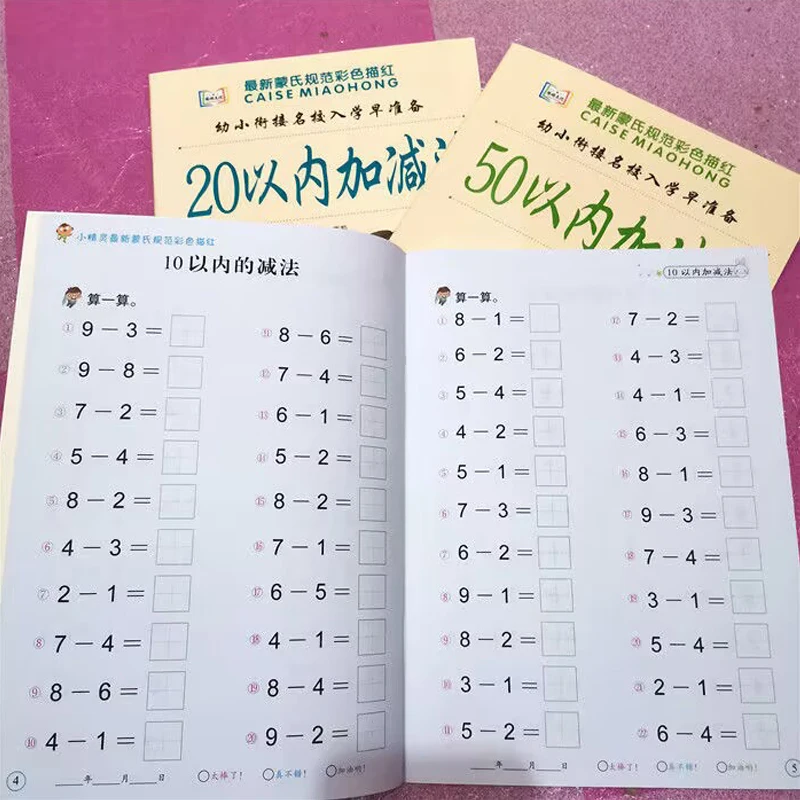 最新蒙氏规范彩色描红
CAISE MIAOHONG
幼小衔接名校入学早准备
20以内加减
最新蒙氏规范彩色描红
CAISE MIAOHONG
幼小衔接名校入学早准备
50以内加
小精灵最新蒙氏规范彩色描红
10以内的减法
算一算。
① 9－3＝
② 9－8＝
③ 7－2＝
④ 5－4＝
⑤ 8－2＝
⑥ 4－3＝
⑦ 2－1＝
⑧ 7－4＝
⑨ 8－6＝
⑩ 4－1＝
⑪ 8－6＝
⑫ 7－4＝
⑬ 6－1＝
⑭ 5－2＝
⑮ 8－2＝
⑯ 7－1＝
⑰ 6－5＝
⑱ 4－1＝
⑲ 8－4＝
⑳ 9－2＝
4
年 月 日
太棒了！ 真不错！ 加油哟！
10以内加减法
算一算。
① 8－1＝
② 6－2＝
③ 5－4＝
④ 4－2＝
⑤ 5－1＝
⑥ 7－3＝
⑦ 6－2＝
⑧ 9－1＝
⑨ 8－2＝
⑩ 3－1＝
⑪ 5－2＝
⑫ 7－2＝
⑬ 4－3＝
⑭ 4－1＝
⑮ 6－3＝
⑯ 8－1＝
⑰ 9－3＝
⑱ 7－4＝
⑲ 3－1＝
⑳ 5－4＝
㉑ 2－1＝
㉒ 6－4＝
年 月 日
太棒了！ 真不错！ 加油哟！
5